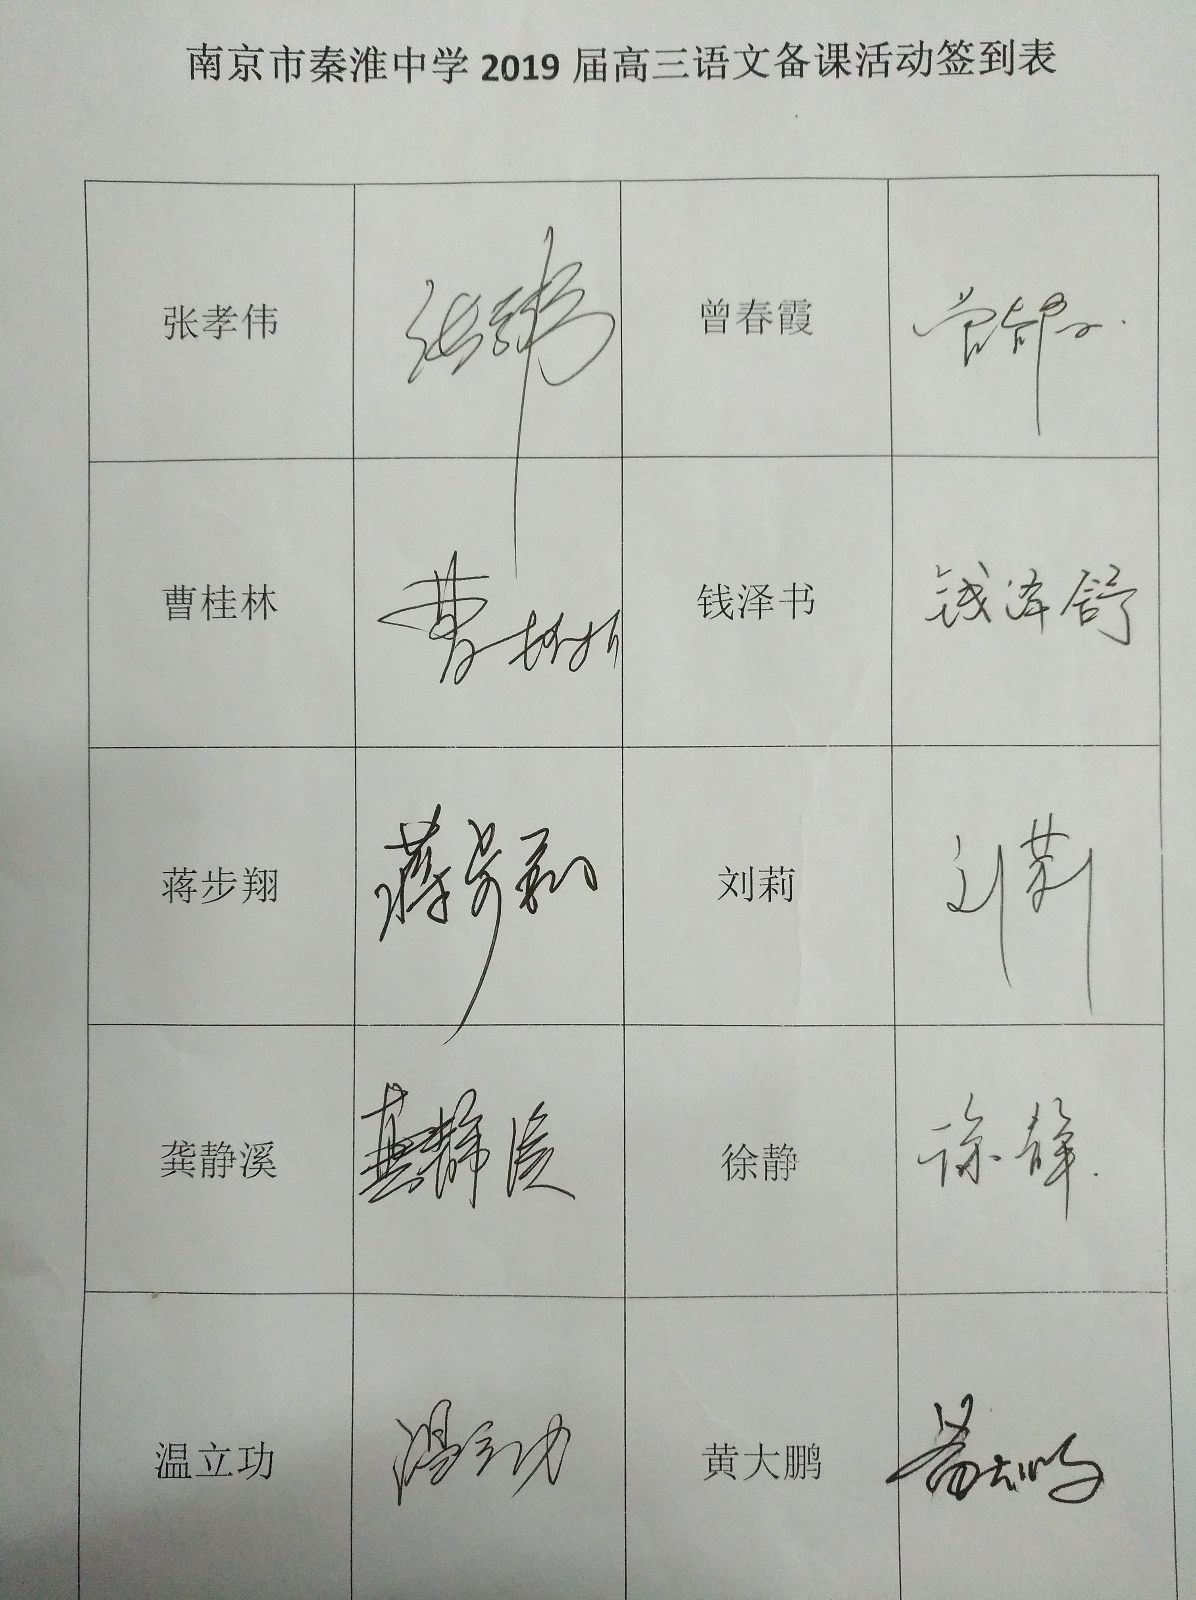 南京市秦淮中学 2019 届高三语文备课活动签到表
张孝伟 张孝伟 曾春霞 曾春霞
曹桂林 曹桂林 钱泽书 钱泽舒
蒋步翔 蒋步翔 刘莉 刘莉
龚静溪 龚静溪 徐静 徐静
温立功 温立功 黄大鹏 黄大鹏